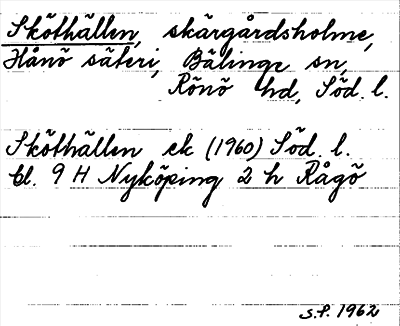 Sköthällen, skärgårdsholme,
Hånö säteri, Bälinge sn,
Rönö hd, Söd. l.
Sköthällen ek (1960) Söd. l.
bl. 9 H Nyköping 2 h Rågö
S.F. 1962